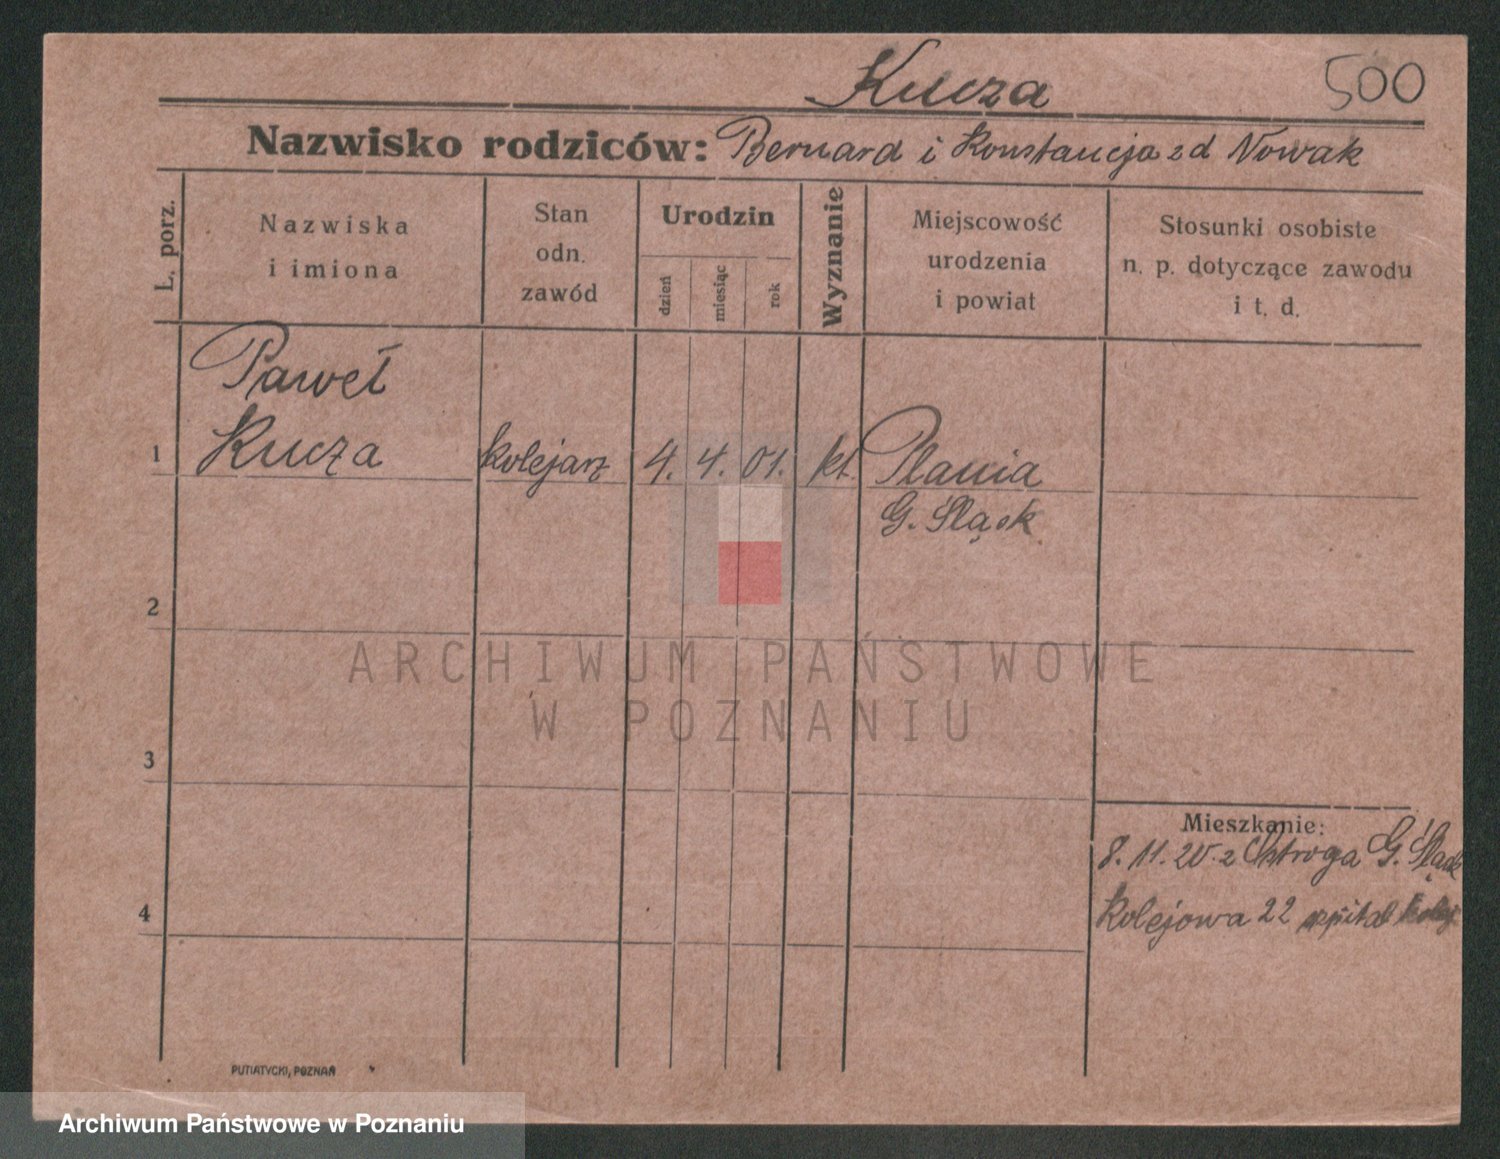 Kucza
500
Nazwisko rodziców: Bernard i Konstancja z d Nowak
L. porz.
Nazwiska
i imiona
Stan
odn.
zawód
Urodzin
dzień
miesiąc
rok
Wyznanie
Miejscowość
urodzenia
i powiat
Stosunki osobiste
n. p. dotyczące zawodu
i t. d.
Paweł
1 Kucza kolejarz 4. 4. 01. kt. Plania
G. Śląsk
2
ARCHIWUM PAŃSTWOWE
W POZNANIU
3
Mieszkanie:
8. 11. 20. z G. Śląsk
4
Kolejowa 22 szpital kolej
PUTIATYCKI, POZNAŃ
Archiwum Państwowe w Poznaniu